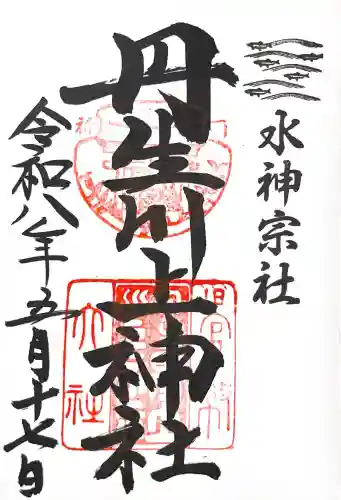 水神宗社
丹生川上神社
令和八年五月十七日